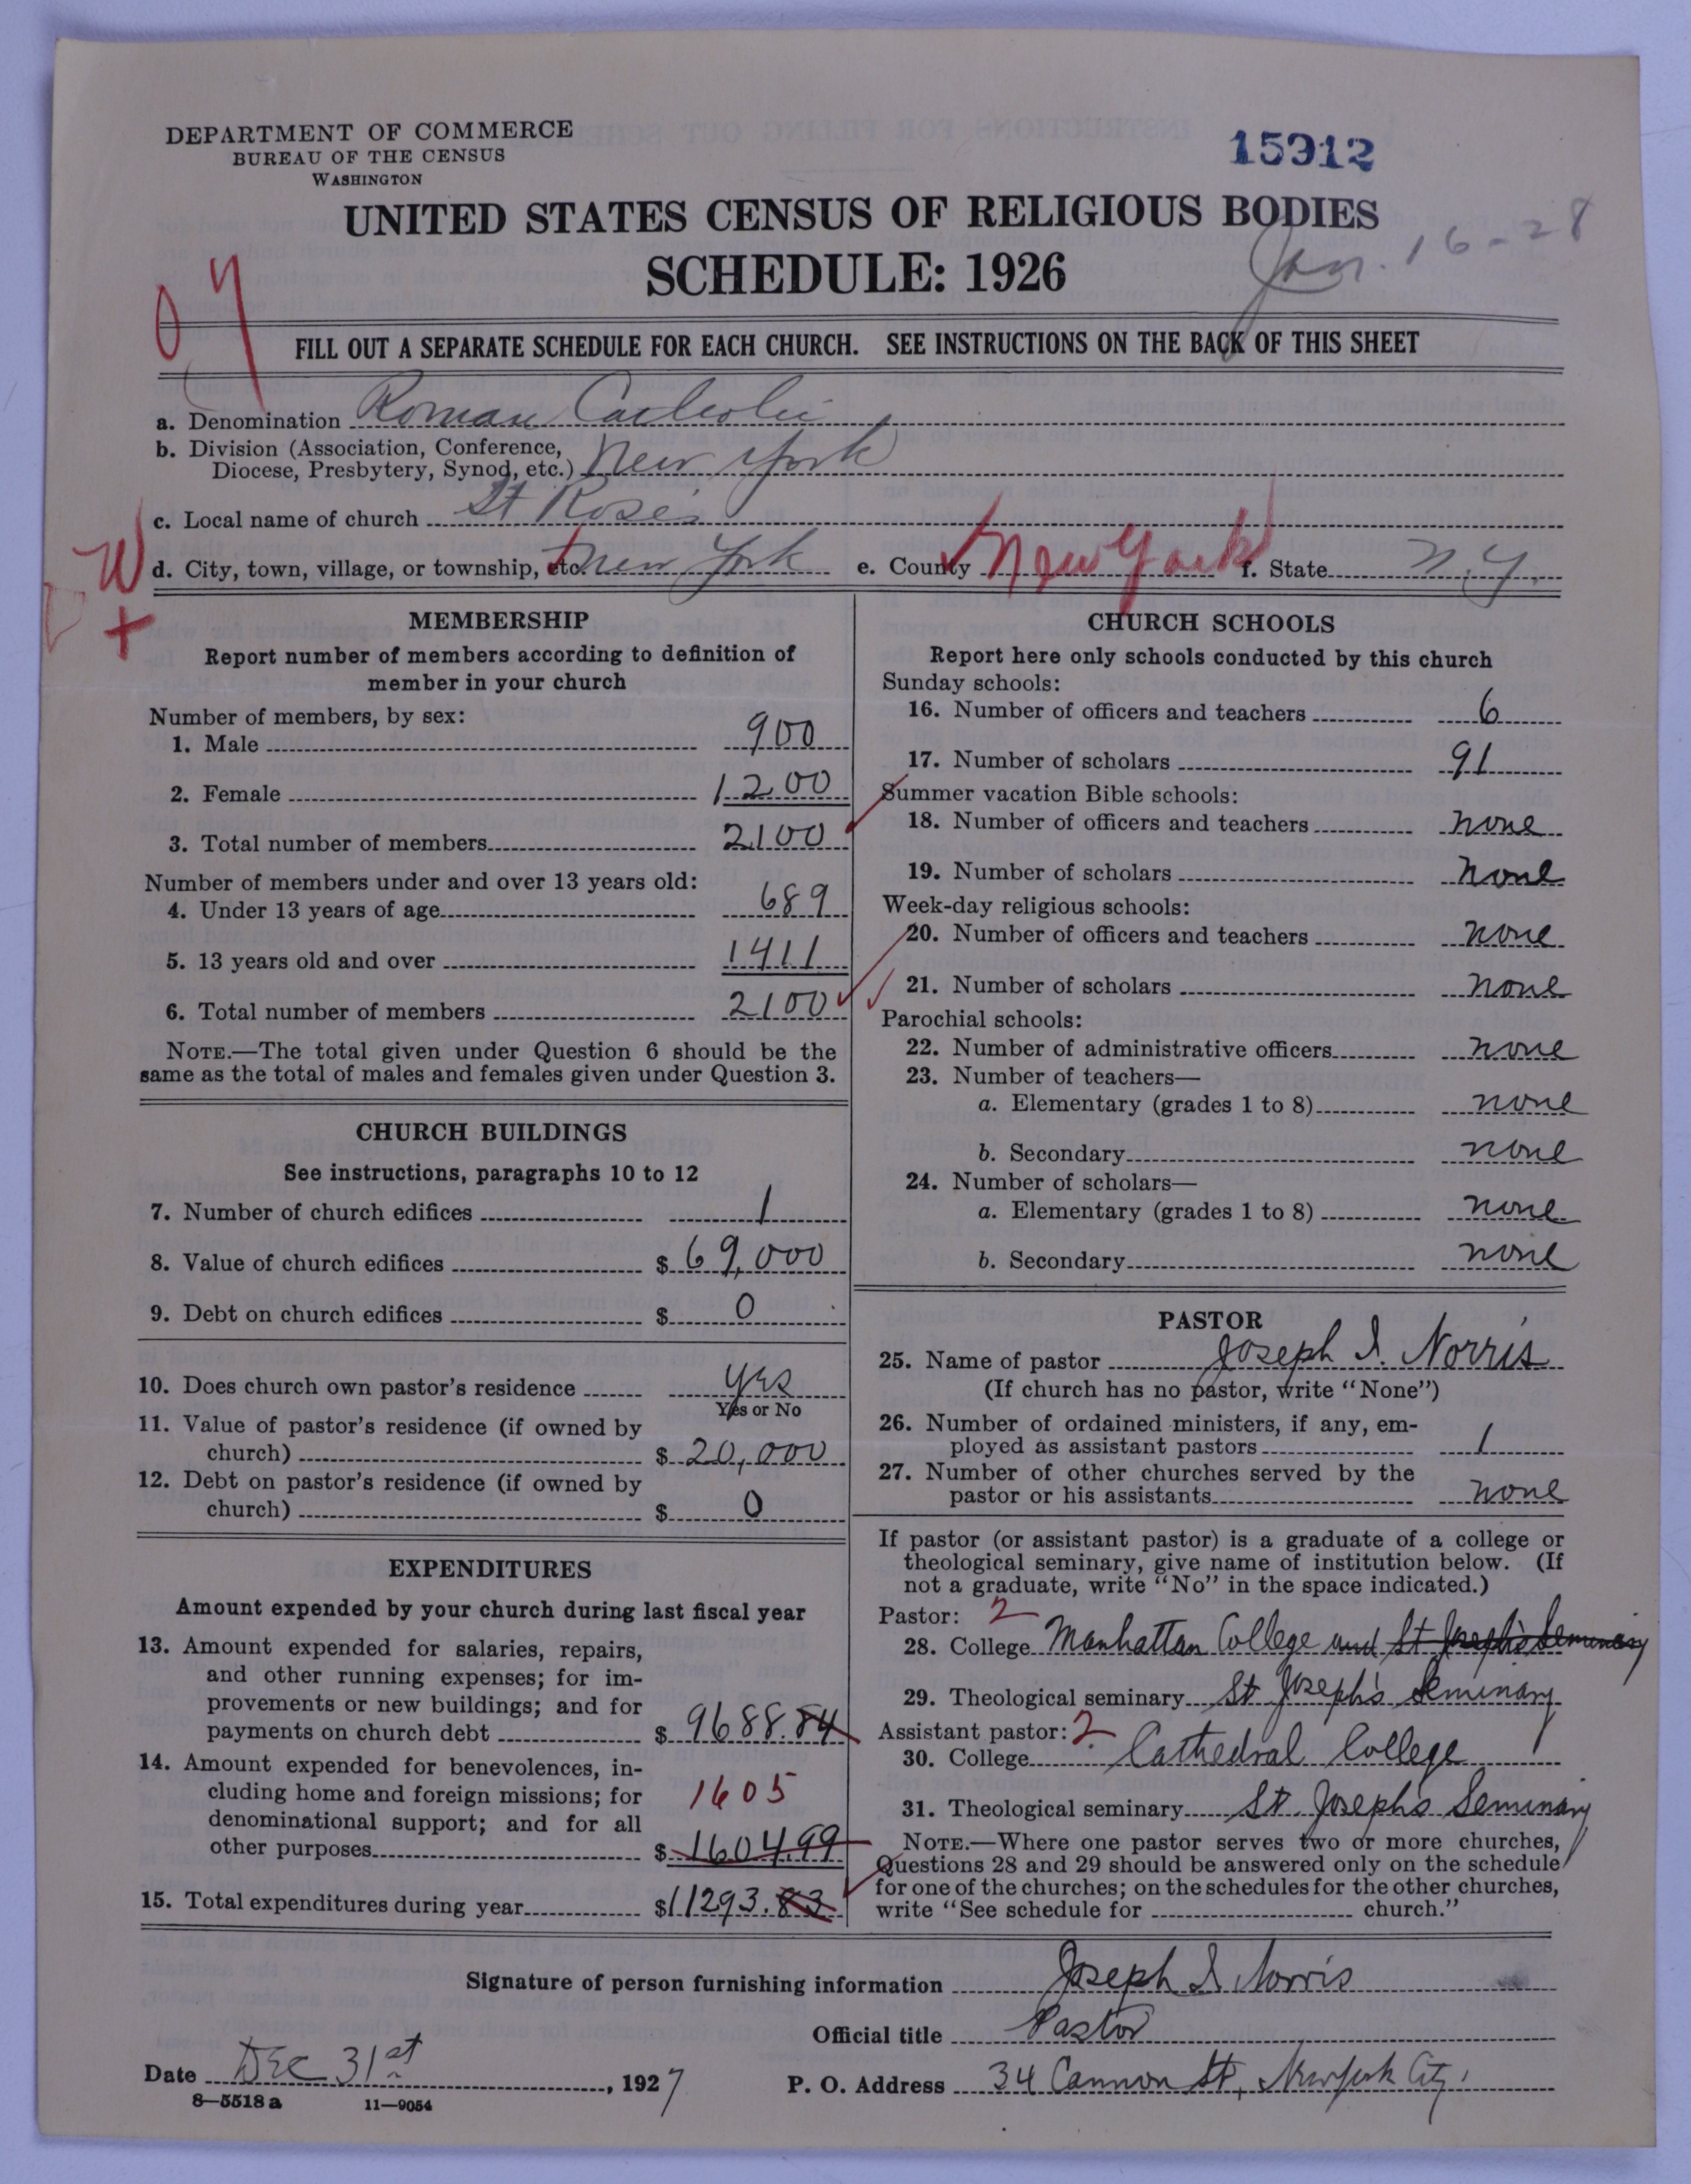 DEPARTMENT OF COMMERCE
BUREAU OF THE CENSUS
WASHINGTON
15912
UNITED STATES CENSUS OF RELIGIOUS BODIES
SCHEDULE: 1926
Jan. 16-28
FILL OUT A SEPARATE SCHEDULE FOR EACH CHURCH. SEE INSTRUCTIONS ON THE BACK OF THIS SHEET
a. Denomination Roman Catholic
b. Division (Association, Conference,
Diocese, Presbytery, Synod, etc.) New York
c. Local name of church St Rose's
W d. City, town, village, or township, etc. New York e. County New York f. State N.Y.
+
MEMBERSHIP
Report number of members according to definition of
member in your church
Number of members, by sex:
1. Male 900
2. Female 1200
3. Total number of members 2100
Number of members under and over 13 years old:
4. Under 13 years of age 689
5. 13 years old and over 1411
6. Total number of members 2100
NOTE.—The total given under Question 6 should be the
same as the total of males and females given under Question 3.
CHURCH BUILDINGS
See instructions, paragraphs 10 to 12
7. Number of church edifices 1
8. Value of church edifices $ 69,000
9. Debt on church edifices $ 0
10. Does church own pastor's residence yes
Yes or No
11. Value of pastor's residence (if owned by
church) $ 20,000
12. Debt on pastor's residence (if owned by
church) $ 0
EXPENDITURES
Amount expended by your church during last fiscal year
13. Amount expended for salaries, repairs,
and other running expenses; for im-
provements or new buildings; and for
payments on church debt $ 9688.84
14. Amount expended for benevolences, in-
cluding home and foreign missions; for
denominational support; and for all
1605
other purposes $ 1604.99
15. Total expenditures during year $11293.83
CHURCH SCHOOLS
Report here only schools conducted by this church
Sunday schools:
16. Number of officers and teachers 6
17. Number of scholars 91
Summer vacation Bible schools:
18. Number of officers and teachers none
19. Number of scholars none
Week-day religious schools:
20. Number of officers and teachers none
21. Number of scholars none
Parochial schools:
22. Number of administrative officers none
23. Number of teachers—
a. Elementary (grades 1 to 8) none
b. Secondary none
24. Number of scholars—
a. Elementary (grades 1 to 8) none
b. Secondary none
PASTOR
25. Name of pastor Joseph I. Norris
(If church has no pastor, write "None")
26. Number of ordained ministers, if any, em-
ployed as assistant pastors 1
27. Number of other churches served by the
pastor or his assistants none
If pastor (or assistant pastor) is a graduate of a college or
theological seminary, give name of institution below. (If
not a graduate, write "No" in the space indicated.)
Pastor: 2
28. College Manhattan College and St Joseph's Seminary
29. Theological seminary St Joseph's Seminary
Assistant pastor: 2
30. College Cathedral College
31. Theological seminary St. Joseph's Seminary
NOTE.—Where one pastor serves two or more churches,
Questions 28 and 29 should be answered only on the schedule
for one of the churches; on the schedules for the other churches,
write "See schedule for church."
Signature of person furnishing information Joseph I Norris
Official title Pastor
Date Dec 31st, 1927
P. O. Address 34 Cannon St, New York City
8—5518 a 11—9054